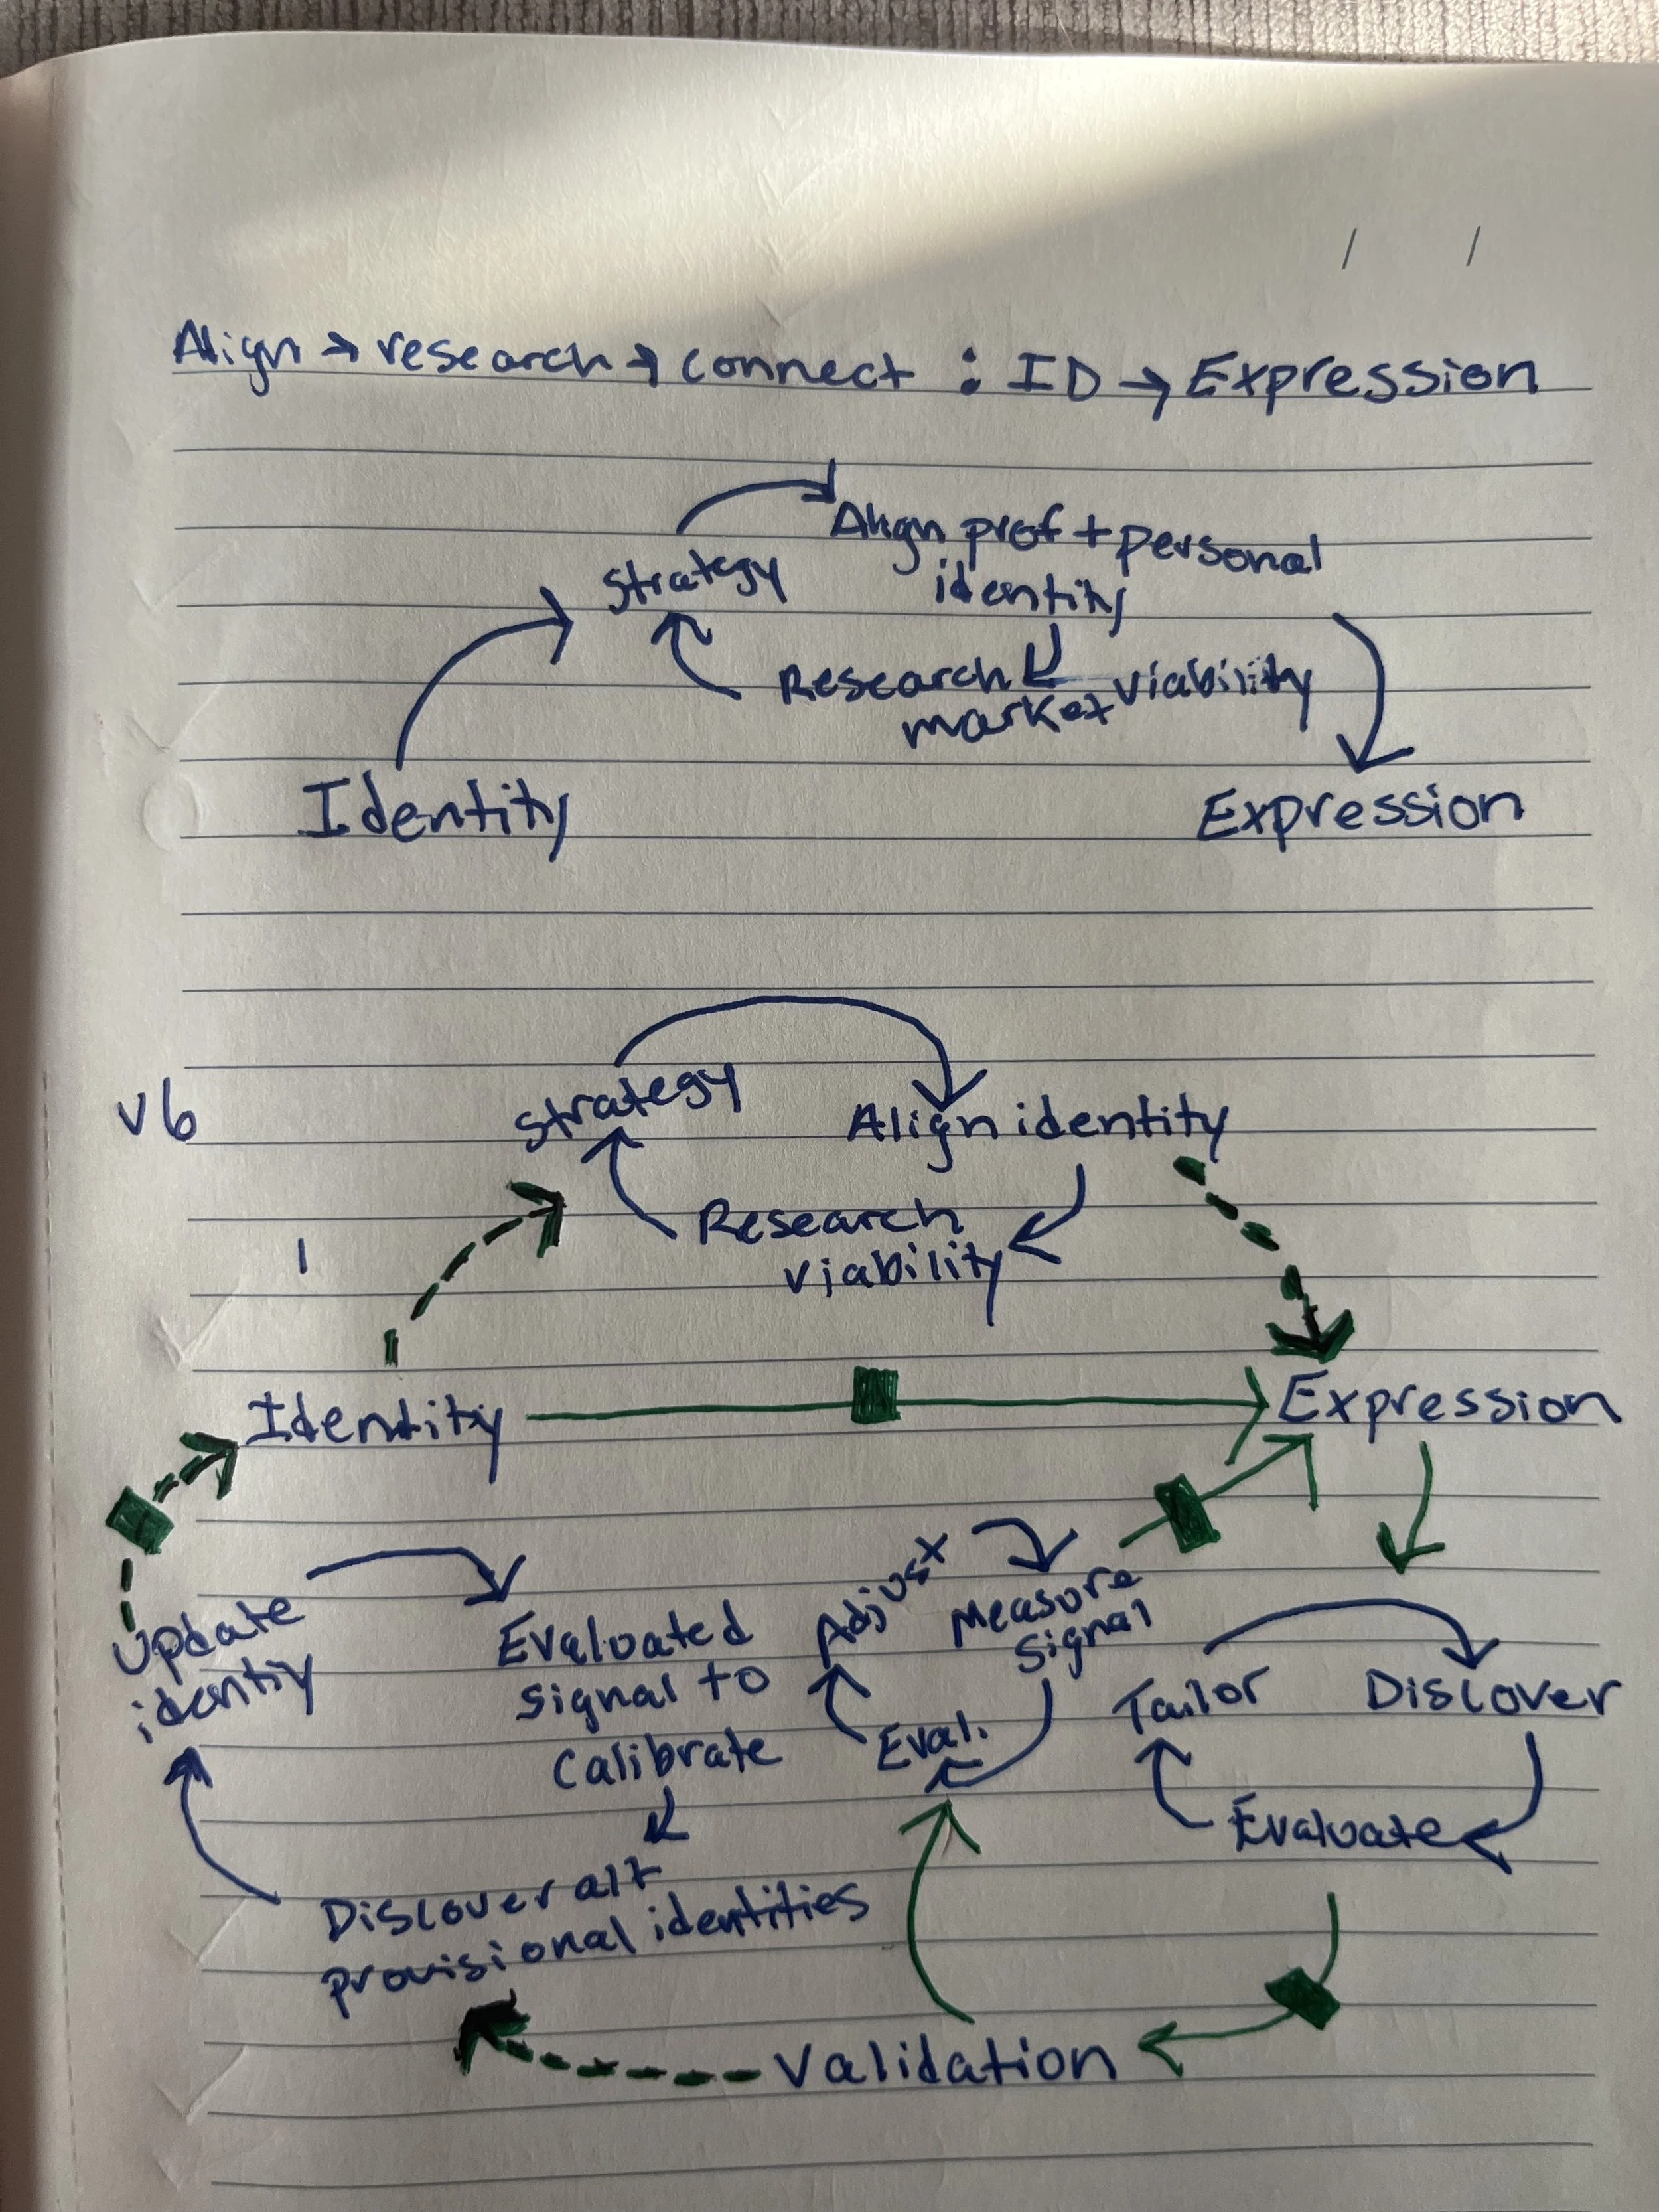 Align → research → connect : ID → Expression
Strategy
Align prof + personal
identity
Research viability
market
Identity
Expression
v6
Strategy
Align identity
Research
viability
Identity
Expression
Update
identiy
Evaluated
signal to
calibrate
Adjust
Measure
signal
Eval.
Tailor
Discover
Evaluate
Discover alt
provisional identities
Validation